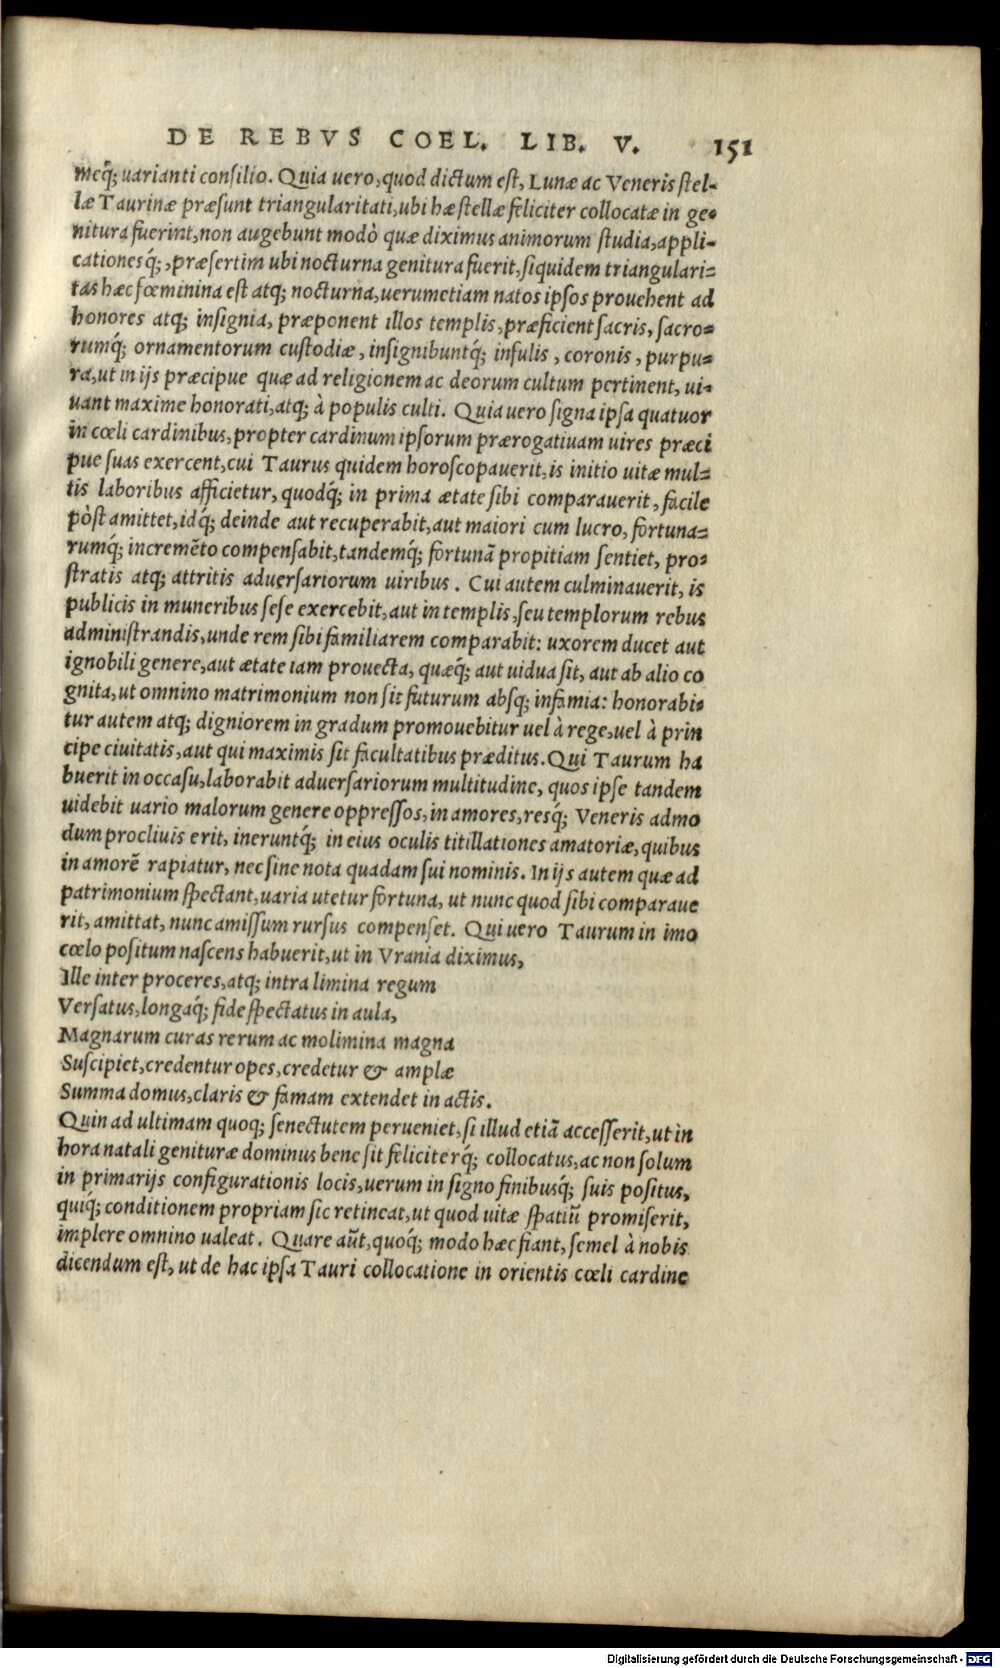 DE REBVS COEL. LIB. V. 151
meq́; uarianti consilio. Quia uero, quod dictum est, Lunæ ac Veneris stel-
læ Taurinæ præsunt triangularitati, ubi hæ stellæ feliciter collocatæ in ge-
nitura fuerint, non augebunt modò quæ diximus animorum studia, appli-
cationesq́;, præsertim ubi nocturna genitura fuerit, siquidem triangulari-
tas hæc fœminina est atq; nocturna, uerumetiam natos ipsos prouehent ad
honores atq; insignia, præponent illos templis, præficient sacris, sacro-
rumq́; ornamentorum custodiæ, insignibuntq́; infulis, coronis, purpu-
ra, ut in ijs præcipue quæ ad religionem ac deorum cultum pertinent, ui-
uant maxime honorati, atq; à populis culti. Quia uero signa ipsa quatuor
in cœli cardinibus, propter cardinum ipsorum prærogatiuam uires præci
pue suas exercent, cui Taurus quidem horoscopauerit, is initio uitæ mul-
tis laboribus afficietur, quodq́; in prima ætate sibi comparauerit, facile
pòst amittet, idq́; deinde aut recuperabit, aut maiori cum lucro, fortuna-
rumq́; incremẽto compensabit, tandemq́; fortunã propitiam sentiet, pro-
stratis atq; attritis aduersariorum uiribus. Cui autem culminauerit, is
publicis in muneribus sese exercebit, aut in templis, seu templorum rebus
administrandis, unde rem sibi familiarem comparabit: uxorem ducet aut
ignobili genere, aut ætate iam prouecta, quæq́; aut uidua sit, aut ab alio co
gnita, ut omnino matrimonium non sit futurum absq; infamia: honorabi-
tur autem atq; digniorem in gradum promouebitur uel à rege, uel à prin
cipe ciuitatis, aut qui maximis sit facultatibus præditus. Qui Taurum ha
buerit in occasu, laborabit aduersariorum multitudine, quos ipse tandem
uidebit uario malorum genere oppressos, in amores, resq́; Veneris admo
dum procliuis erit, ineruntq́; in eius oculis titillationes amatoriæ, quibus
in amorẽ rapiatur, nec sine nota quadam sui nominis. In ijs autem quæ ad
patrimonium spectant, uaria utetur fortuna, ut nunc quod sibi comparaue
rit, amittat, nunc amissum rursus compenset. Qui uero Taurum in imo
cœlo positum nascens habuerit, ut in Vrania diximus,
Ille inter proceres, atq; intra limina regum
Versatus, longaq́; fide spectatus in aula,
Magnarum curas rerum ac molimina magna
Suscipiet, credentur opes, credetur & amplæ
Summa domus, claris & famam extendet in actis.
Quin ad ultimam quoq; senectutem perueniet, si illud etiã accesserit, ut in
hora natali genituræ dominus bene sit feliciterq́; collocatus, ac non solum
in primarijs configurationis locis, uerum in signo finibusq́; suis positus,
quiq́; conditionem propriam sic retineat, ut quod uitæ spatiũ promiserit,
implere omnino ualeat. Quare aũt, quoq́; modo hæc fiant, semel à nobis
dicendum est, ut de hac ipsa Tauri collocatione in orientis cœli cardine
Digitalisierung gefördert durch die Deutsche Forschungsgemeinschaft - DFG